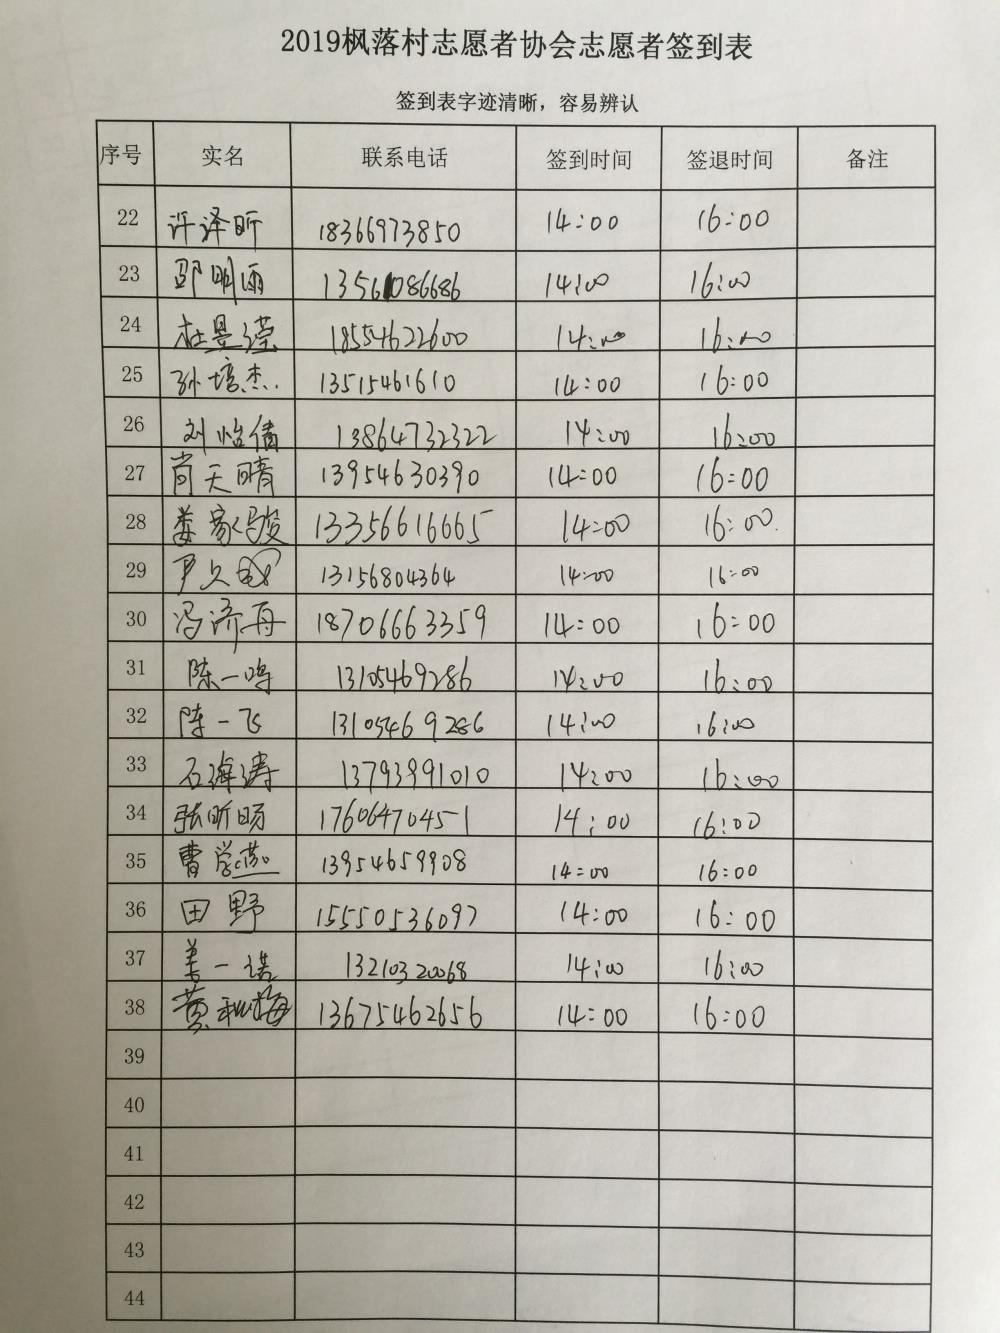 2019枫落村志愿者协会志愿者签到表
签到表字迹清晰，容易辨认
序号 实名 联系电话 签到时间 签退时间 备注
22 许泽昕 18366973850 14:00 16:00
23 邵明雨 13561086686 14:00 16:00
24 杜昱滢 18554622600 14:00 16:00
25 孙培杰 13515461610 14:00 16:00
26 刘怡倩 13864732322 14:00 16:00
27 肖天晴 13954630390 14:00 16:00
28 娄家骏 13356616665 14:00 16:00
29 尹久 13156804364 14:00 16:00
30 冯济舟 18706663359 14:00 16:00
31 陈一鸣 13105469286 14:00 16:00
32 陈一飞 13105469286 14:00 16:00
33 石海涛 13793991010 14:00 16:00
34 张昕旸 17606470451 14:00 16:00
35 曹学燕 13954659908 14:00 16:00
36 田野 15550536097 14:00 16:00
37 姜一诺 13210320068 14:00 16:00
38 黄秋梅 13675462656 14:00 16:00
39
40
41
42
43
44